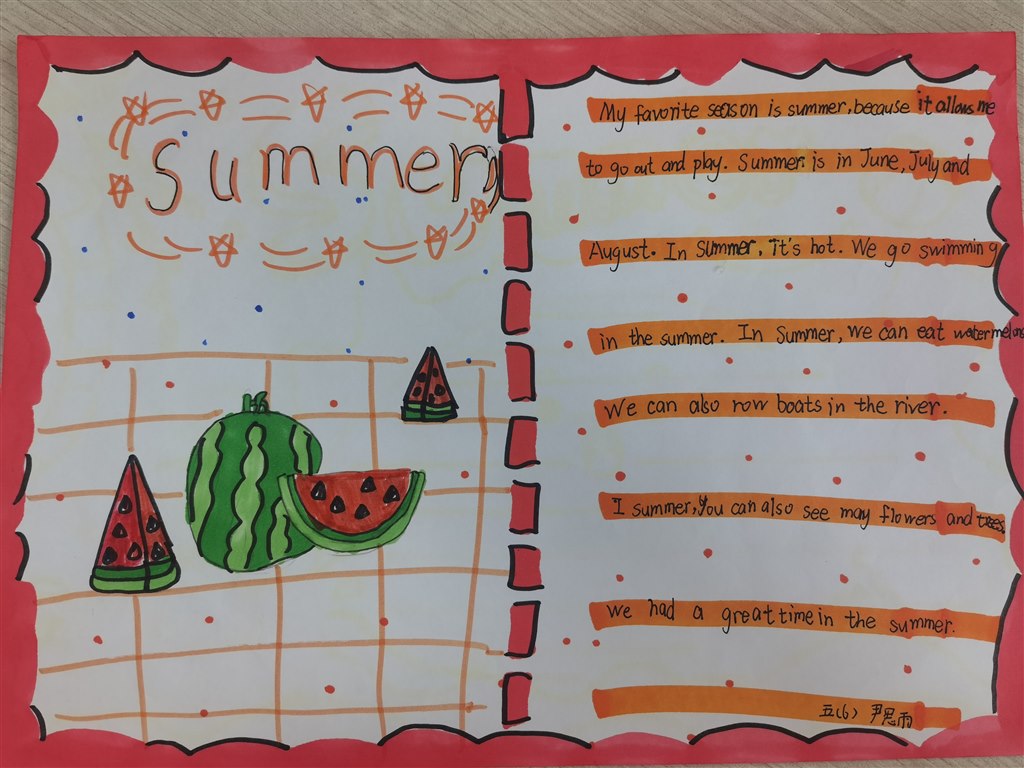 Summer
My favorite season is summer, because it allows me
to go out and play. Summer is in June, July and
August. In summer, it's hot. We go swimming
in the summer. In Summer, we can eat watermelons
We can also row boats in the river.
I summer, you can also see may flowers and trees.
we had a great time in the summer.
五(6) 尹思雨